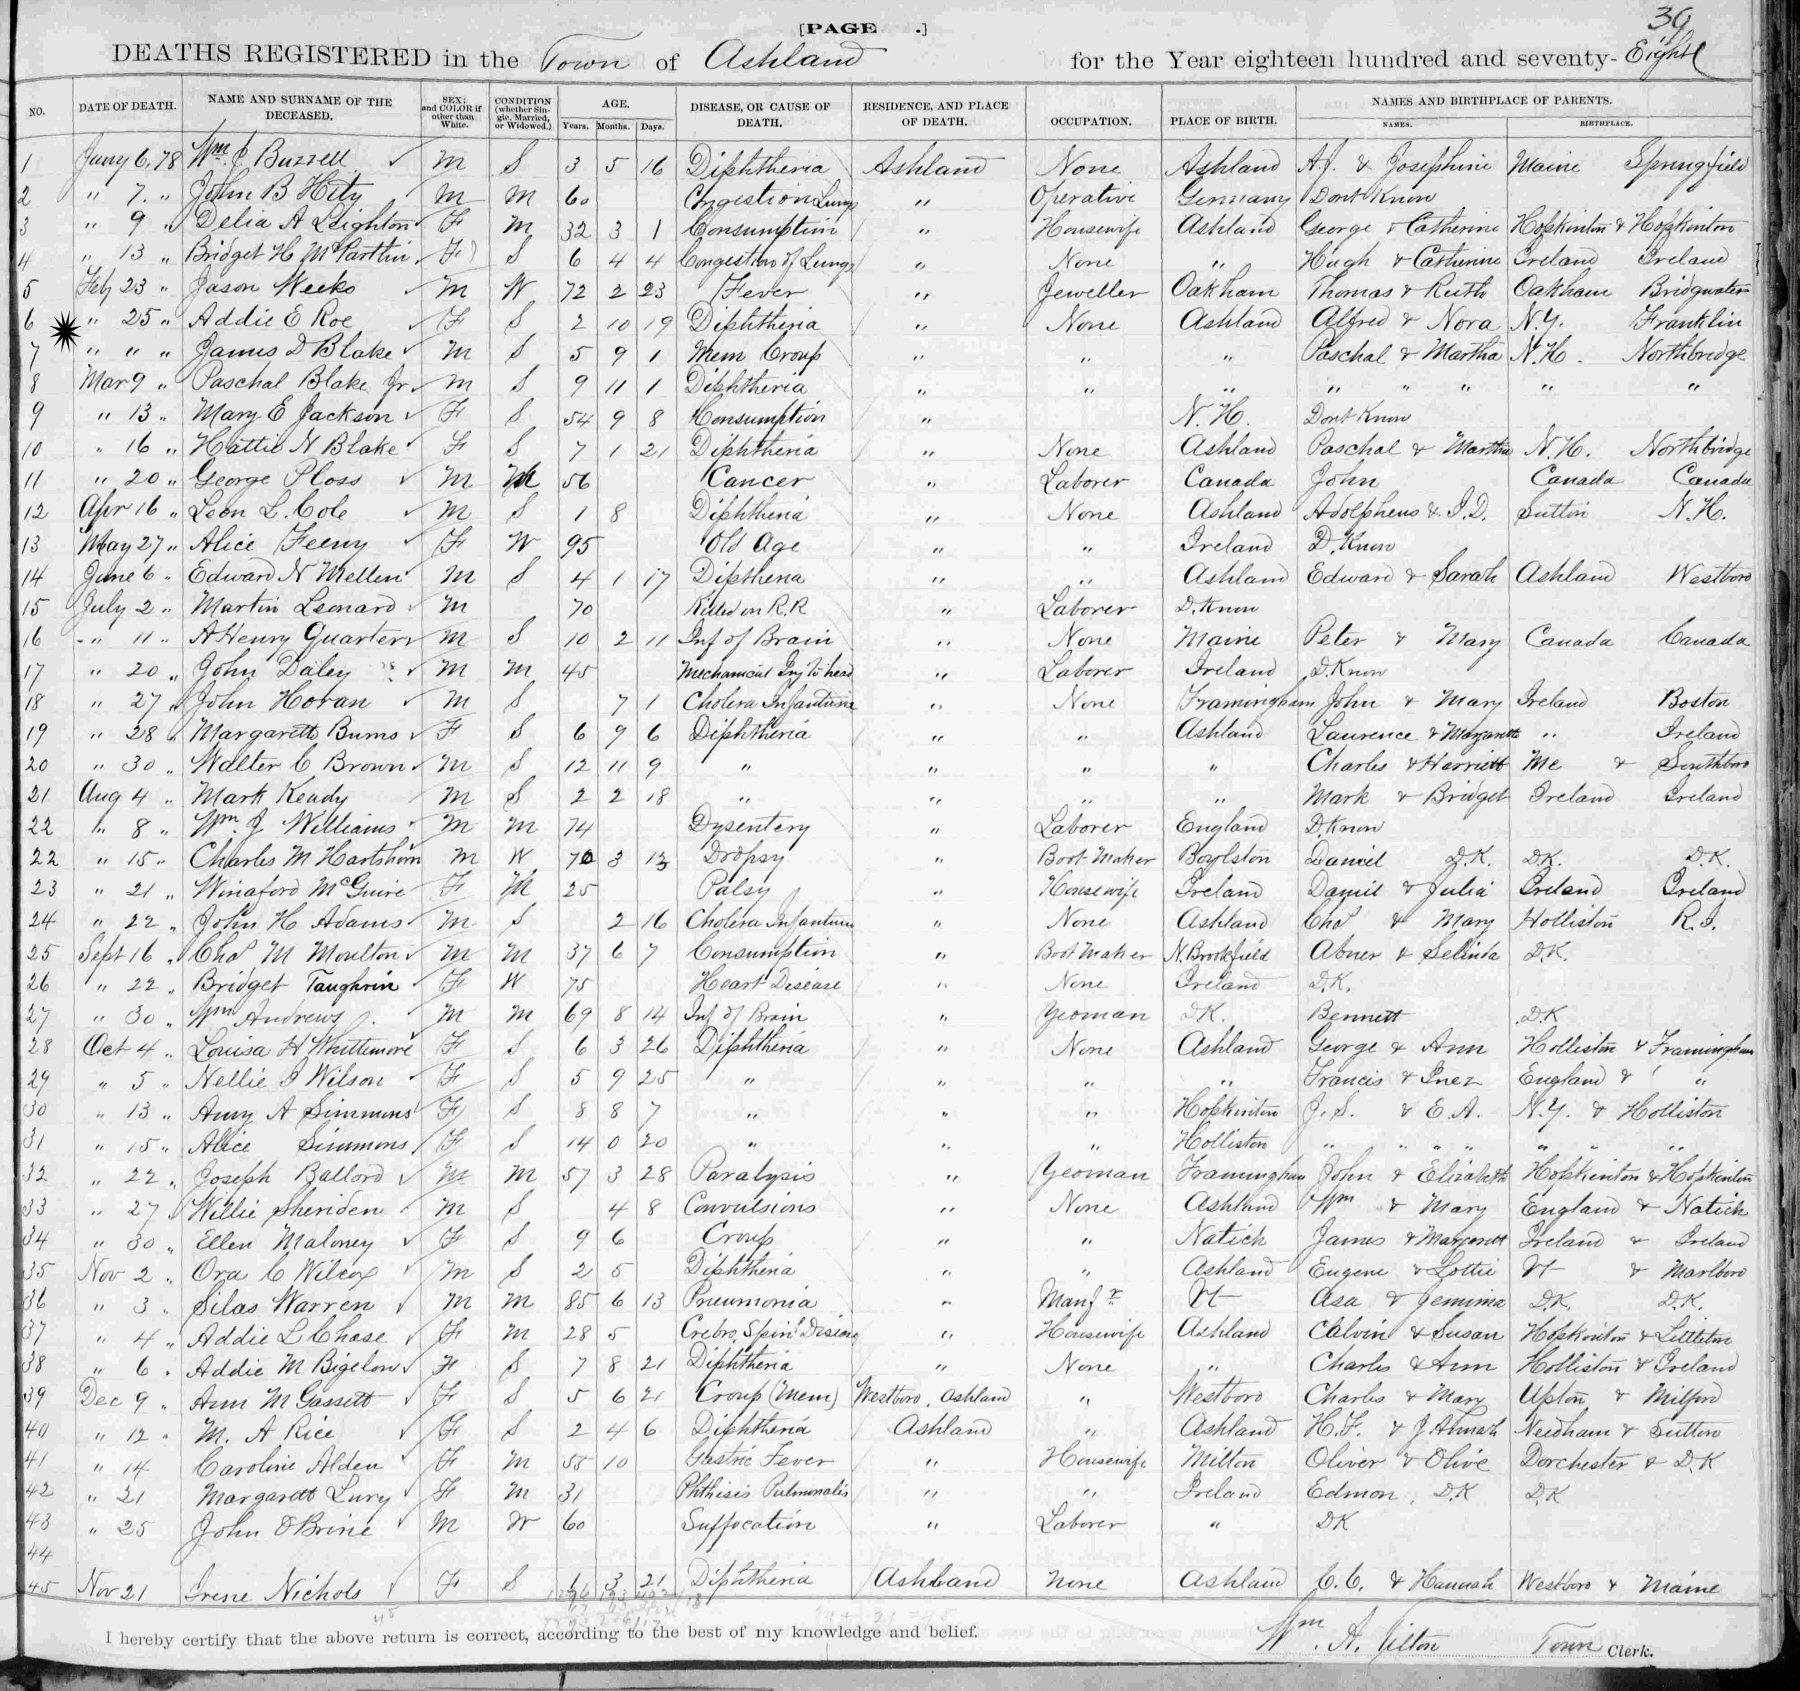 39
[PAGE .]
DEATHS REGISTERED in the Town of Ashland for the Year eighteen hundred and seventy-Eight
NO. DATE OF DEATH. NAME AND SURNAME OF THE DECEASED. SEX; and COLOR if other than White. CONDITION (whether Single, Married, or Widowed.) AGE. Years. Months. Days. DISEASE, OR CAUSE OF DEATH. RESIDENCE, AND PLACE OF DEATH. OCCUPATION. PLACE OF BIRTH. NAMES AND BIRTHPLACE OF PARENTS. NAMES. BIRTHPLACE.
1 Jany 6, 78 Wm. J Buzzell M S 3 5 16 Diphtheria Ashland None Ashland A.J. & Josephine Maine Springfield
2 " 7 " John B Hity M M 60 Congestion Lungs " Operative Germany Dont Know
3 " 9 " Delia A Leighton F M 32 3 1 Consumption " Housewife Ashland George & Catherine Hopkinton & Hopkinton
4 " 13 " Bridget H McPartlin F S 6 4 4 Congestion of Lungs " None " Hugh & Catherine Ireland Ireland
5 Feb 23 " Jason Weeks M W 72 2 23 Fever " Jeweller Oakham Thomas & Ruth Oakham Bridgwater
6 " 25 " Addie E Roe F S 2 10 19 Diphtheria " None Ashland Alfred & Nora N.Y. Franklin
7 " " " James D Blake M S 5 9 1 Mem Croup " " " Paschal & Martha N.H. Northbridge
8 Mar 9 " Paschal Blake Jr. M S 9 11 1 Diphtheria " " " " " " " "
9 " 13 " Mary E Jackson F S 54 9 8 Consumption " N.H. Dont Know
10 " 16 " Hattie N Blake F S 7 1 21 Diphtheria " None Ashland Paschal & Martha N.H. Northbridge
11 " 20 " George Ploss M M 56 Cancer " Laborer Canada John Canada Canada
12 Apr 16 " Leon L. Cole M S 1 8 Diphtheria " None Ashland Adolpheus & I.D. Sutton N.H.
13 May 27 " Alice Feeny F W 95 Old Age " " Ireland D. Know
14 June 6 " Edward N Mellen M S 4 1 17 Dipstheria " " Ashland Edward & Sarah Ashland Westboro
15 July 2 " Martin Leonard M 70 Killed on R.R " Laborer D. Know
16 " 11 " A Henry Quarters M S 10 2 11 Inf of Brain " None Maine Peter & Mary Canada Canada
17 " 20 " John Daley M M 45 Mechanical Inj to head " Laborer Ireland D. Know
18 " 27 " John Horan M S 7 1 Cholera Infantum " None Framingham John & Mary Ireland Boston
19 " 28 " Margarett Burns F S 6 9 6 Diphtheria " " Ashland Laurence & Margarett " Ireland
20 " 30 " Walter C Brown M S 12 11 9 " " " " Charles & Harriett Me & Southboro
21 Aug 4 " Mark Keady M S 2 2 18 " " " " Mark & Bridget Ireland Ireland
22 " 8 " Wm. J Williams M M 74 Dysentery " Laborer England D. Know
22 " 15 " Charles M Hartshorn M W 70 3 13 Dropsy " Boot Maker Boylston Daniel D.K. D.K. D.K.
23 " 21 " Winaford McGuire F M 25 Palsy " Housewife Ireland Daniel & Julia Ireland Ireland
24 " 22 " John H Adams M S 2 16 Cholera Infantum " None Ashland Chas & Mary Holliston R.I.
25 Sept 16 " Chas M Moulton M M 37 6 7 Consumption " Boot Maker N. Brookfield Abner & Selinda D.K.
26 " 22 " Bridget Taughrin F W 75 Heart Disease " None Ireland D.K.
27 " 30 " Wm Andrews M M 69 8 14 Inf of Brain " Yeoman D.K. Bennett D.K
28 Oct 4 " Louisa H Whittimore F S 6 3 26 Diphtheria " None Ashland George & Ann Holliston & Framingham
29 " 5 " Nellie I Wilson F S 5 9 25 " " " " Francis & Inez England & "
30 " 13 " Amy A Simmons F S 8 8 7 " " " Hopkinton J.S. & E.A. N.Y. & Holliston
31 " 15 " Alice Simmons F S 14 0 20 " " " Holliston " " " " " " "
32 " 22 " Joseph Ballord M M 57 3 28 Paralysis " Yeoman Framingham John & Elizabeth Hopkinton & Hopkinton
33 " 27 " Willie Sheriden M S 4 8 Convulsions " None Ashland Wm & Mary England & Natick
34 " 30 " Ellen Maloney F S 9 6 Croup " " Natick James & Margarett Ireland & Ireland
35 Nov 2 " Ora C Wilcox M S 2 5 Diphtheria " " Ashland Eugene & Lottie Vt & Marlboro
36 " 3 " Silas Warren M M 85 6 13 Pneumonia " Manfr Vt Asa & Jemima D.K. D.K.
37 " 4 " Addie L Chase F M 28 5 Crebro, Spinl Disease " Housewife Ashland Calvin & Susan Hopkinton & Littleton
38 " 6 " Addie M Bigelow F S 7 8 21 Diphtheria " None " Charles & Ann Holliston & Ireland
39 Dec 9 " Ann M Gassett F S 5 6 21 Croup (Mem) Westboro, Ashland " Westboro Charles & Mary Upton & Milford
40 " 12 " M. A Rice F S 2 4 6 Diphtheria Ashland " Ashland H.F. & J Annah Needham & Sutton
41 " 14 Caroline Alden F M 55 10 Gastric Fever " Housewife Milton Oliver & Olive Dorchester & D.K
42 " 21 Margarett Lury F M 31 Phthisis Pulmonalis " " Ireland Edmon, D.K D.K
43 " 25 John O Brine M W 60 Suffocation " Laborer " D.K
44
45 Nov 21 Irene Nichols F S 1 3 21 Diphtheria Ashland None Ashland C.C. & Hannah Westboro & Maine
I hereby certify that the above return is correct, according to the best of my knowledge and belief.
Wm. A. Tilton Town Clerk.